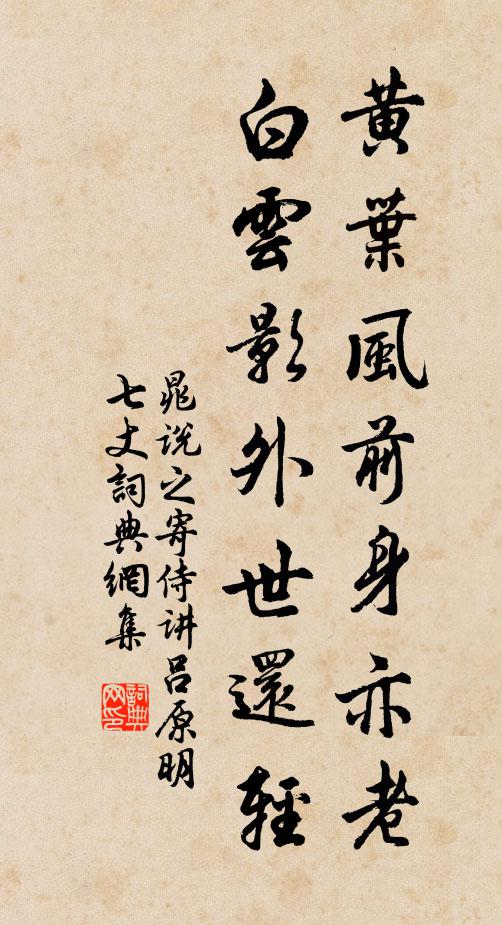 黄葉風前身亦老
白雲影外世還輕
晁説之寄侍讲吕原明
七丈詞典網集
詞典网印